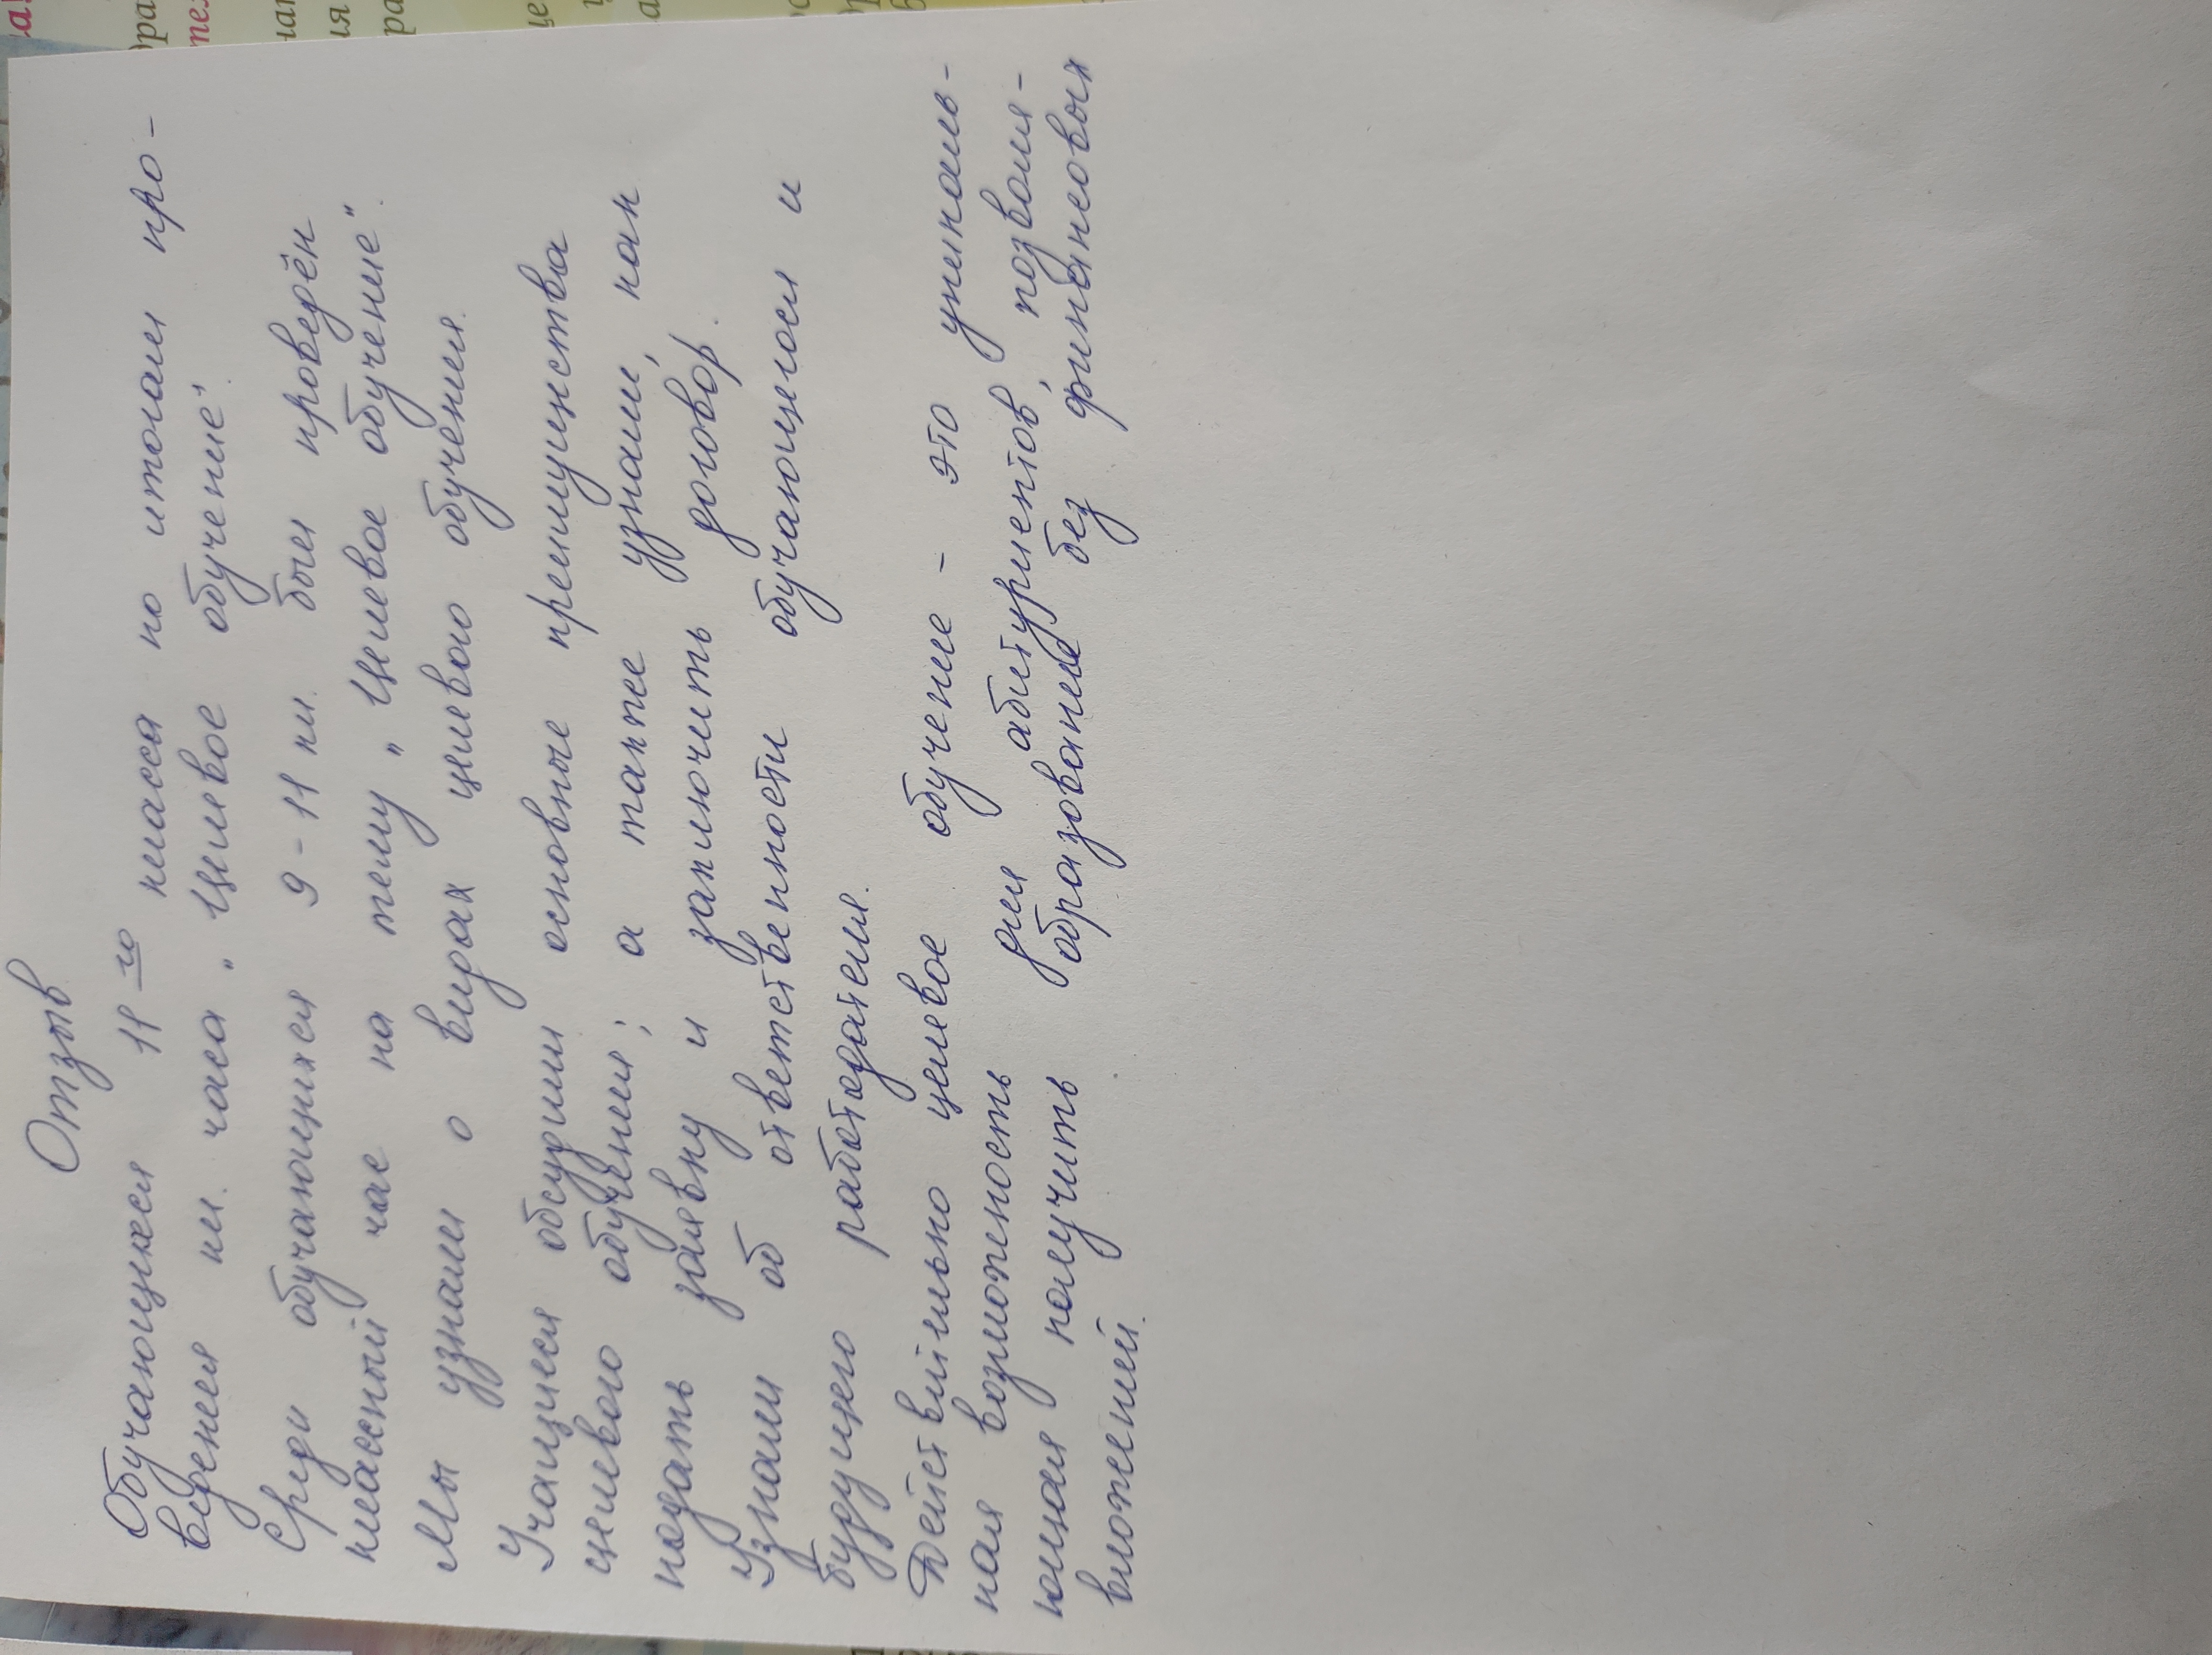 Отзыв.
Обучающихся 11го класса по итогам про-
ведения кл. часа „Целевое обучение“.
Среди обучающихся 9-11 кл. был проведён
классный час на тему „Целевое обучение“.
Мы узнали о видах целевого обучения.
Учащиеся обсудили основные преимущества
целевого обучения; а также узнали, как
подать заявку и заключить договор.
Узнали об ответственности обучающегося и
будущего работодателя.
Действительно целевое обучение - это уникаль-
ная возможность для абитуриентов, позволя-
ющая получить образование без финансовых
вложений.